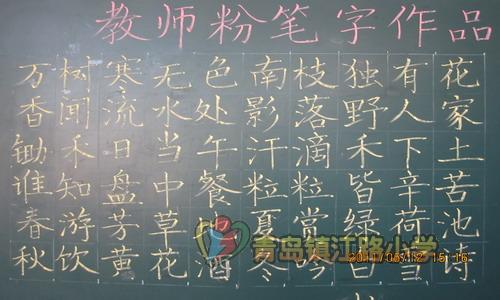 教师粉笔字作品
万树寒无色南枝独有花
香闻流水处影落野人家
锄禾日当午汗滴禾下土
谁知盘中餐粒粒皆辛苦
春游芳草地夏赏绿荷池
秋饮黄花酒冬吟白雪诗
青岛镇江路小学